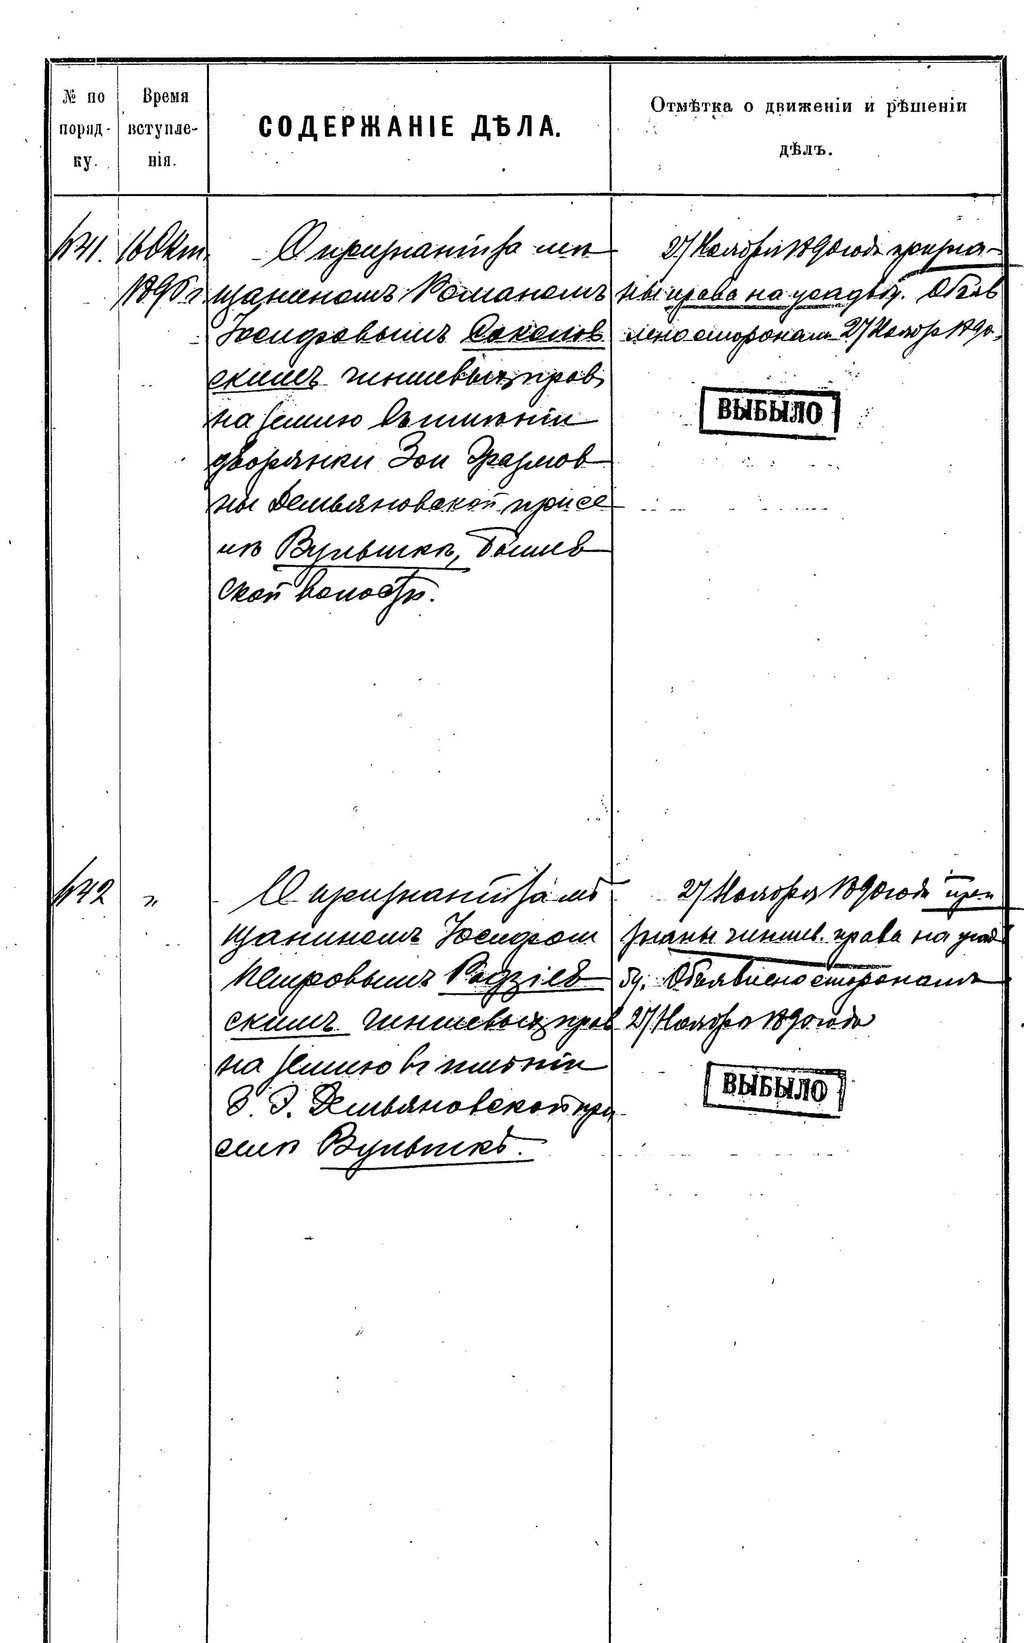 № по поряд-ку.
Время вступле-нія.
СОДЕРЖАНІЕ ДѢЛА.
Отмѣтка о движеніи и рѣшеніи
дѣлъ.
641. 16 Окт.
1890 г.
О признаніи за мѣ
щаниномъ Романомъ
Іосифовымъ Соколов
скимъ чиншевыхъ прав
на землю въ имѣніи
дворянки Зои Эразмов
ны Демьяновской при се
лѣ Вулькѣ,
ской волости.
27 Ноября 1890 года призна-
ны права на усадьбу. Объяв
лено сторонам 27 Ноябр 1890.
ВЫБЫЛО
642 „
О признаніи за мѣ
щаниномъ Іосифом
Петровымъ Радзіев
скимъ чиншевыхъ прав
на землю въ имѣніи
З. Э. Демьяновской при
селѣ
27 Ноября 1890 года при
знаны чиншев. права на усад
бу. Объявлено сторонамъ
27 Ноября 1890 года
ВЫБЫЛО